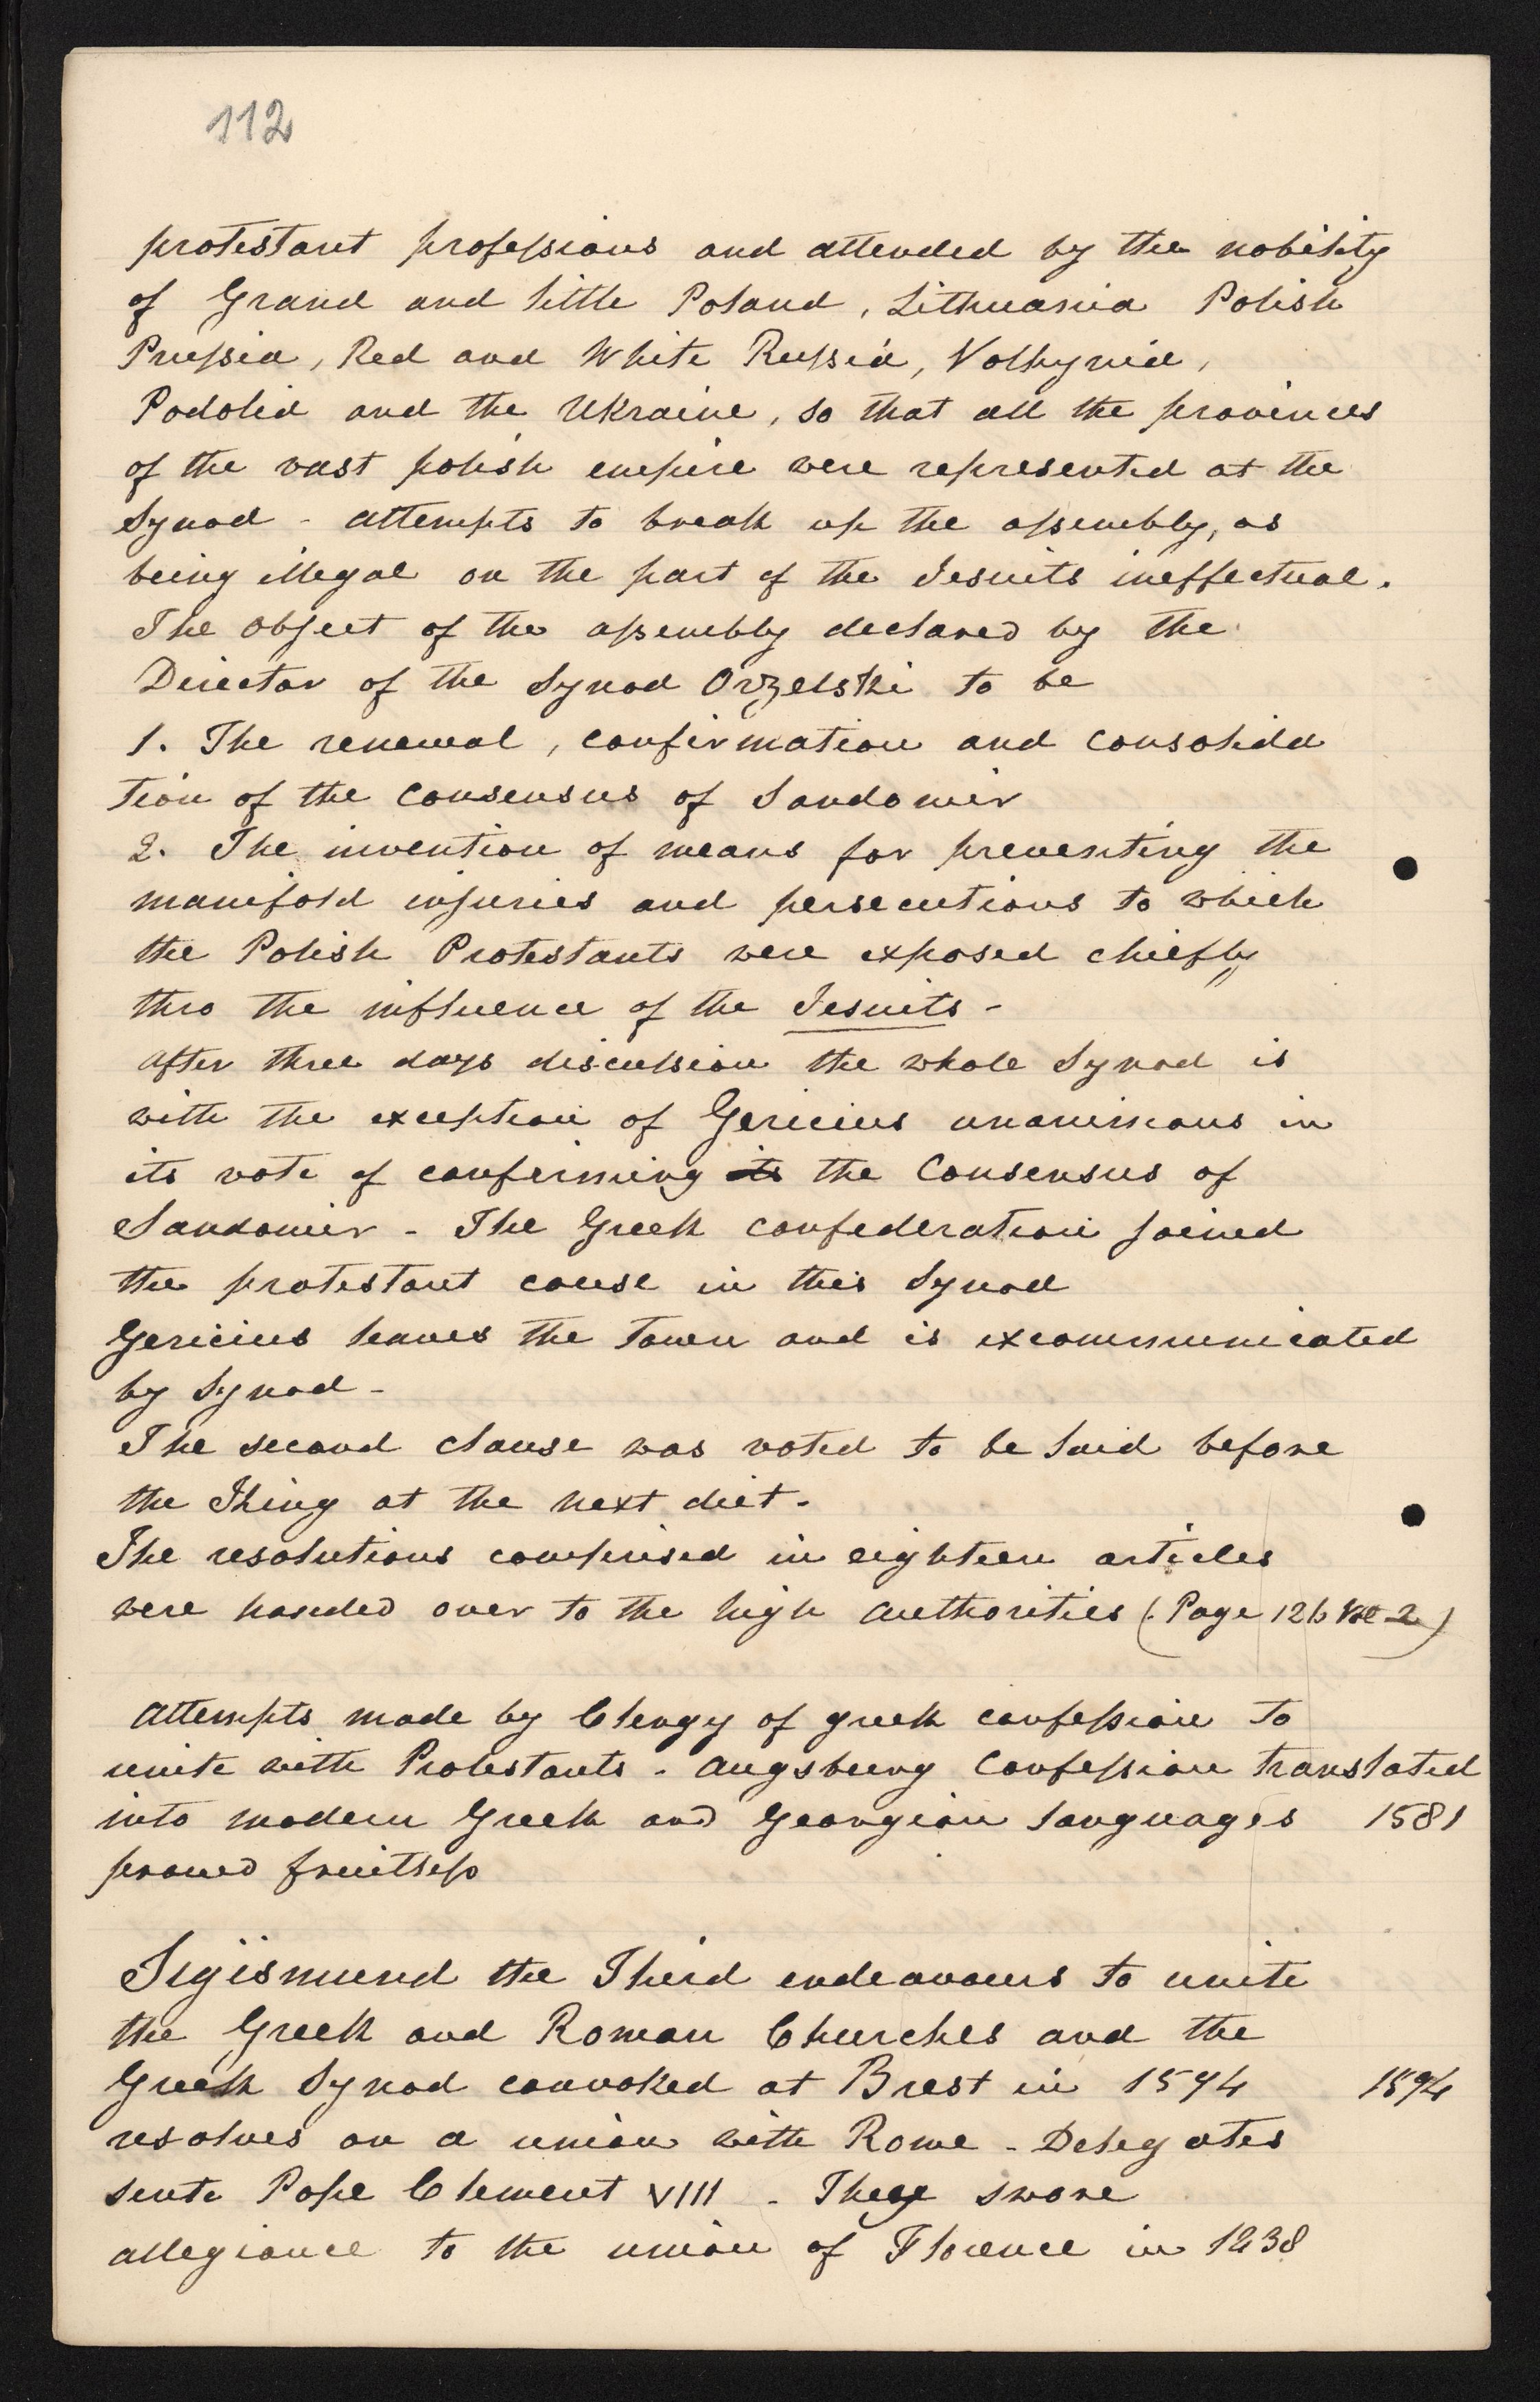 112
protestant professions and attended by the nobility
of Grand and little Poland, Lithuania Polish
Prussia, Red and White Russia, Volhynia,
Podolia and the Ukraine, so that all the provinces
of the vast polish empire were represented at the
Synod - attempts to break up the assembly, as
being illegal on the part of the Jesuits ineffectual.
The object of the assembly declared by the
Director of the Synod Orzelski to be
1. The renewal, confirmation and consolida
tion of the Consensus of Sandomir
2. The invention of means for preventing the
manifold injuries and persecutions to which
the Polish Protestants were exposed chiefly
thro the influence of the Jesuits -
after three days discussion the whole Synod is
with the exception of Gericius unanimous in
its vote of confirming its the Consensus of
Sandomir - The Greek confederation joined
the protestant cause in this Synod
Gericius leaves the Town and is excommunicated
by Synod -
The second clause was voted to be laid before
the King at the next diet -
The resolutions comprised in eighteen articles
were handed over to the high authorities (Page 126 Vol 2)
attempts made by Clergy of greek confession to
unite with Protestants - Augsburg Confession translated
into modern Greek and Georgian languages 1581
proved fruitless
Sigismund the Third endeavours to unite
the Greek and Roman Churches and the
Greek Synod convoked at Brest in 1594 1594
resolves on a union with Rome - Delegates
sent Pope Clement VIII - They swore
allegiance to the union of Florence in 1238